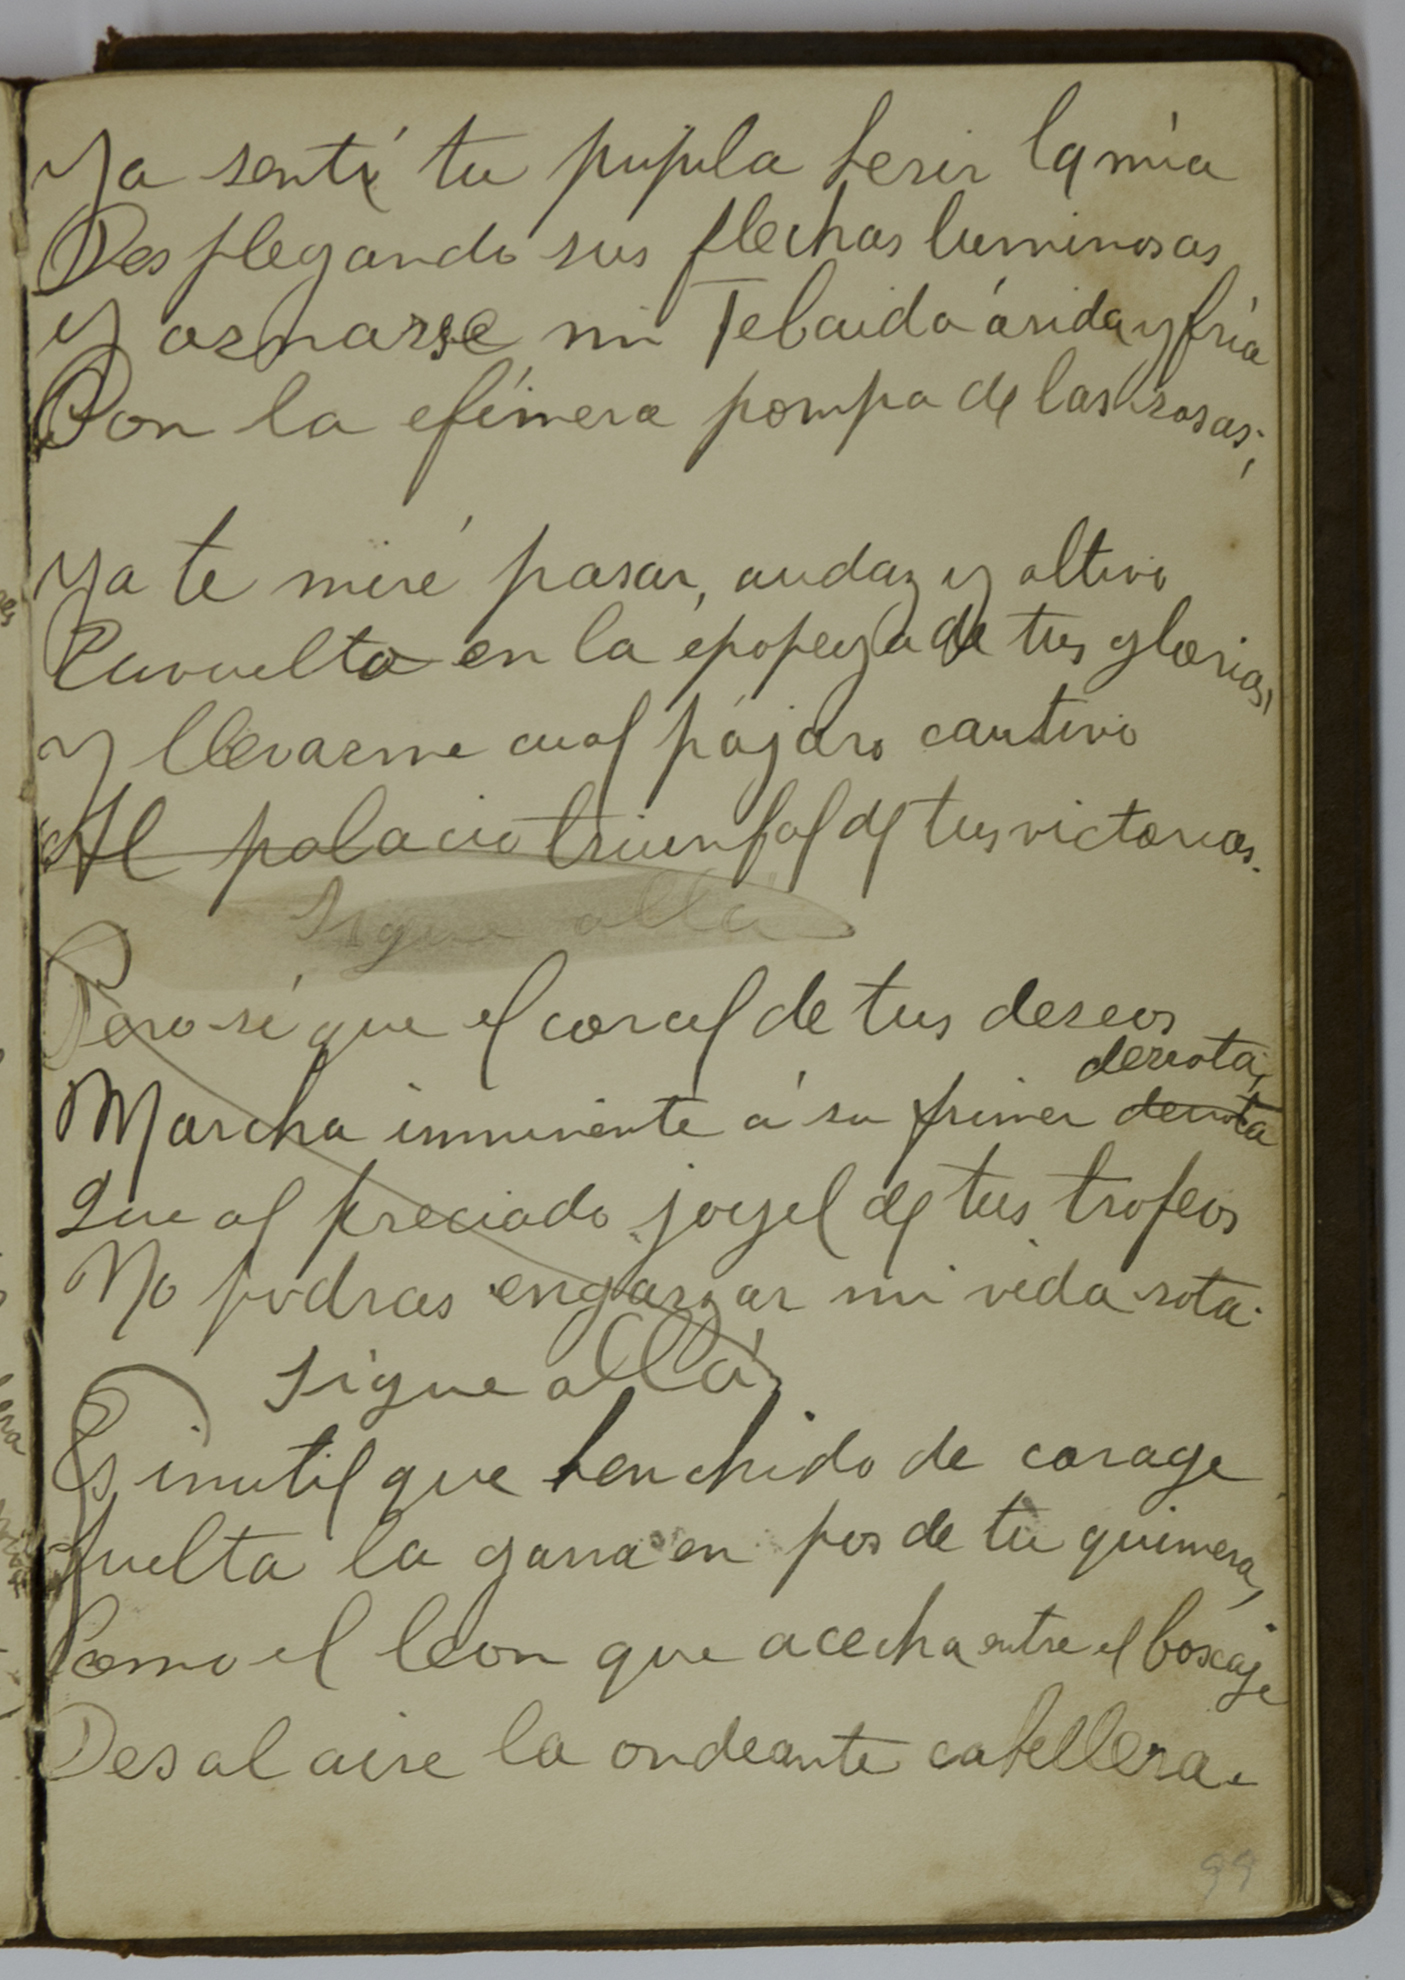 Ya sentí tu pupila herir la mía
Desplegando sus flechas luminosas
Y ornarse mi Tebaida árida y fría
Con la efímera pompa de las rosas;
Ya te miré pasar, audaz y altivo
Envuelto en la epopeya de tus glorias,
Y llevarme cual pájaro cautivo
Al palacio triunfal de tus victorias.
Sigue allá
Pero sé que el corcel de tus deseos
derrota,
Marcha inminente á su primer derrota
Que al preciado joyel de tus trofeos
No podras engarzar mi vida rota.
Sigue allá
Es inutil que henchido de corage
Suelta la garra en pos de tu quimera,
Como el leon que acecha entre el boscaje
Des al aire la ondeante cabellera.
99